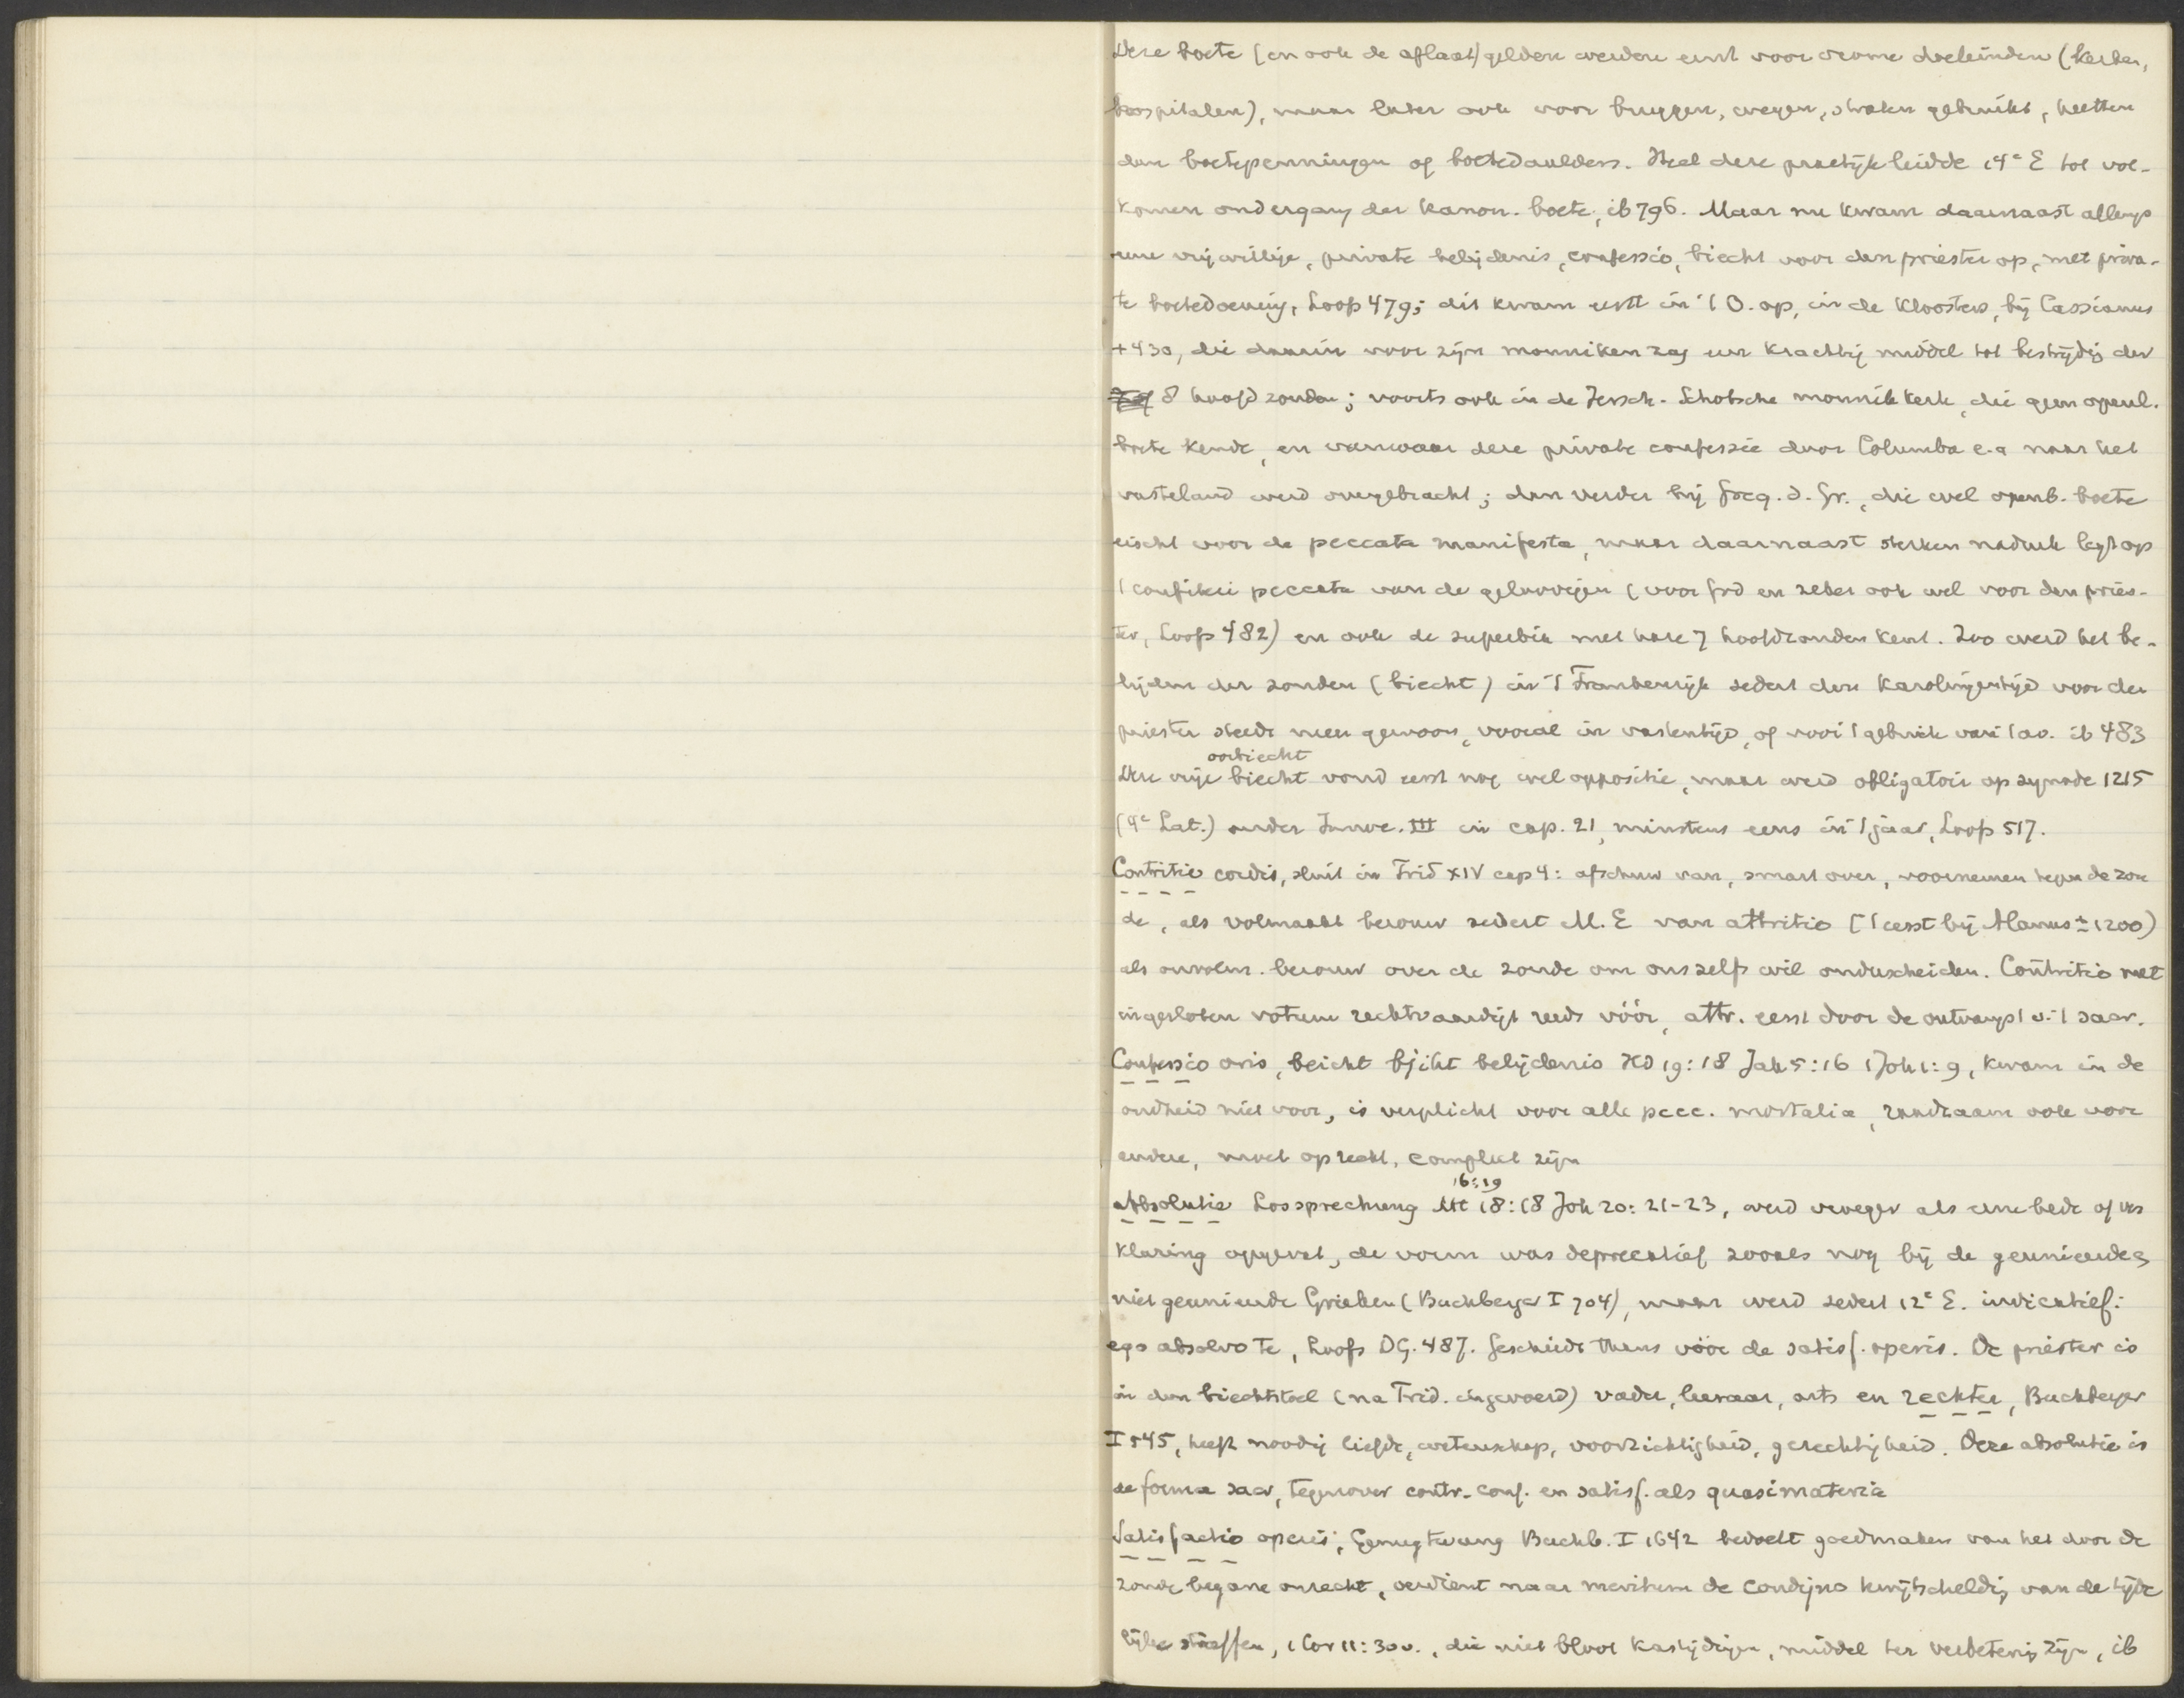 Deze boete (en ook de aflaat) gelden werden eerst voor vrome doeleinden (kerken,
hospitalen), maar later ook voor bruggen, wegen, straten gebruikt, heetten
dan boetepenningen of boetedaalders. Heel deze practijk leidde 14e E tot vol-
komen ondergang der kanon. boete, ib 796. Maar nu kwam daarnaast allengs
eene vrijwillige, private belijdenis, confessio, biecht voor den priester op, met priva-
te boetedoening, Loofs 479; dit kwam eerst in 't O. op, in de kloosters, bij Cassianus
+430, die daarin voor zijn monniken zag een krachtig middel tot bestrijdig der
8 hoofdzonden; voorts ook in de Iersch-Schotsche monnikkerk, die geen openb.
boete kende, en vanwaar deze private confessie door Columba e.a naar het
vasteland werd overgebracht; dan verder bij Greg. d. Gr., die wel openb. boete
eischt voor de peccata manifesta, maar daarnaast sterken nadruk legt op
't confiteri peccata van de geloovigen (voor God en zeker ook wel voor den pries-
ter, Loofs 482) en ook de superbia met hare 7 hoofdzonden kent. Zoo werd het be-
lijden der zonden (biecht) in 't Frankenrijk sedert den Karolingertijd voor den
priester steeds meer gewoon, vooral in vastentijd, of voor 't gebruik van 't av. ib 483
oorbiecht
Deze vrije biecht vond eerst nog wel oppositie, maar werd obligatoir op synode 1215
(4e Lat.) onder Innoc. III in cap. 21, minstens eens in 't jaar, Loofs 517.
Contritio cordis, sluit in Trid XIV cap 4: afschuw van, smart over, voornemen tegen de zon
de, als volmaakt berouw sedert M.E van attritio ('t eerst bij Alanus ± 1200)
als onvolm. berouw over de zonde om ons zelfs wil onderscheiden. Contritio met
ingesloten votum rechtvaardigt reeds vóór, attr. eerst door de ontvangst v. 't sacr.
Confessio oris, beicht bjiht belijdenis HD 19:18 Jak 5:16 1 Joh 1:9, kwam in de
oudheid niet voor, is verplicht voor alle pecc. mortalia, raadzaam ook voor
andere, moet oprecht, compleet zijn
16:19
Absolutie Lossprechung Mt 18:18 Joh 20:21-23, werd vroeger als eene bede of ver
klaring opgevat, de vorm was deprecatief zooals nog bij de geunieerde &
niet geunieerde Grieken (Buchberger I 704), maar werd sedert 12e E. indicatief:
ego absolvo te, Loofs DG. 487. Geschiedt thans vóór de satisf. operis. De priester is
in den biechtstoel (na Trid. ingevoerd) vader, leeraar, arts en rechter, Buchberger
I 545, heeft noodig liefde, wetenschap, voorzichtigheid, gerechtigheid. Deze absolutie is
de forma sacr, tegenover contr. conf. en satisf. als quasimateria
Satisfactio operis, Genugtuung Buchb. I 1642 bedoelt goedmaken van het door de
zonde begane onrecht, verdient naar meritum de condigno kwijtscheldig van de tijde
lijke straffen, 1 Cor 11:30v., die niet bloot kastijdigen, middel ter verbetering zijn, ib